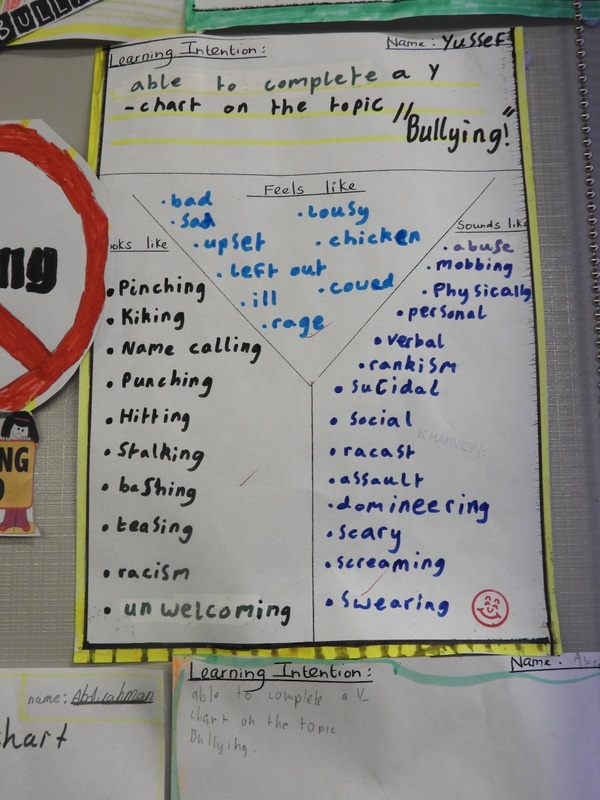 BULL
Learning Intention:
Name: Yussef
able to complete a Y
-chart on the topic
"Bullying!"
Feels like
• bad
• sad
• upset
• left out
• ill
• rage
• Lousy
• chicken
• cowed
ooks like
• Pinching
• Kiking
• Name calling
• Punching
• Hitting
• Stalking
• bashing
• teasing
• racism
• unwelcoming
Sounds like
• abuse
• mobbing
• Physically
• personal
• verbal
• rankism
• suCidal
• social
• racast
• assault
• domineering
• scary
• screaming
• swearing
K HARVEY
ng
NG
name: Abdirahman
hart
Learning Intention:
Name:
able to complete a V
chart on the topic
Bullying.